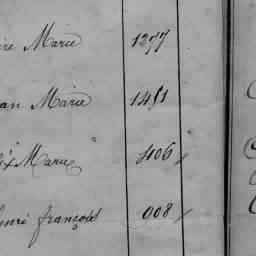 ire Marie 1277
an Marie 1451
ix Marie 406
henri françois 908